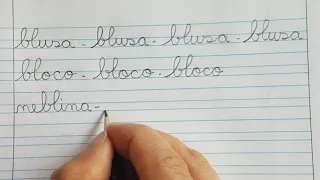 blusa - blusa - blusa - blusa
bloco - bloco - bloco
neblina -